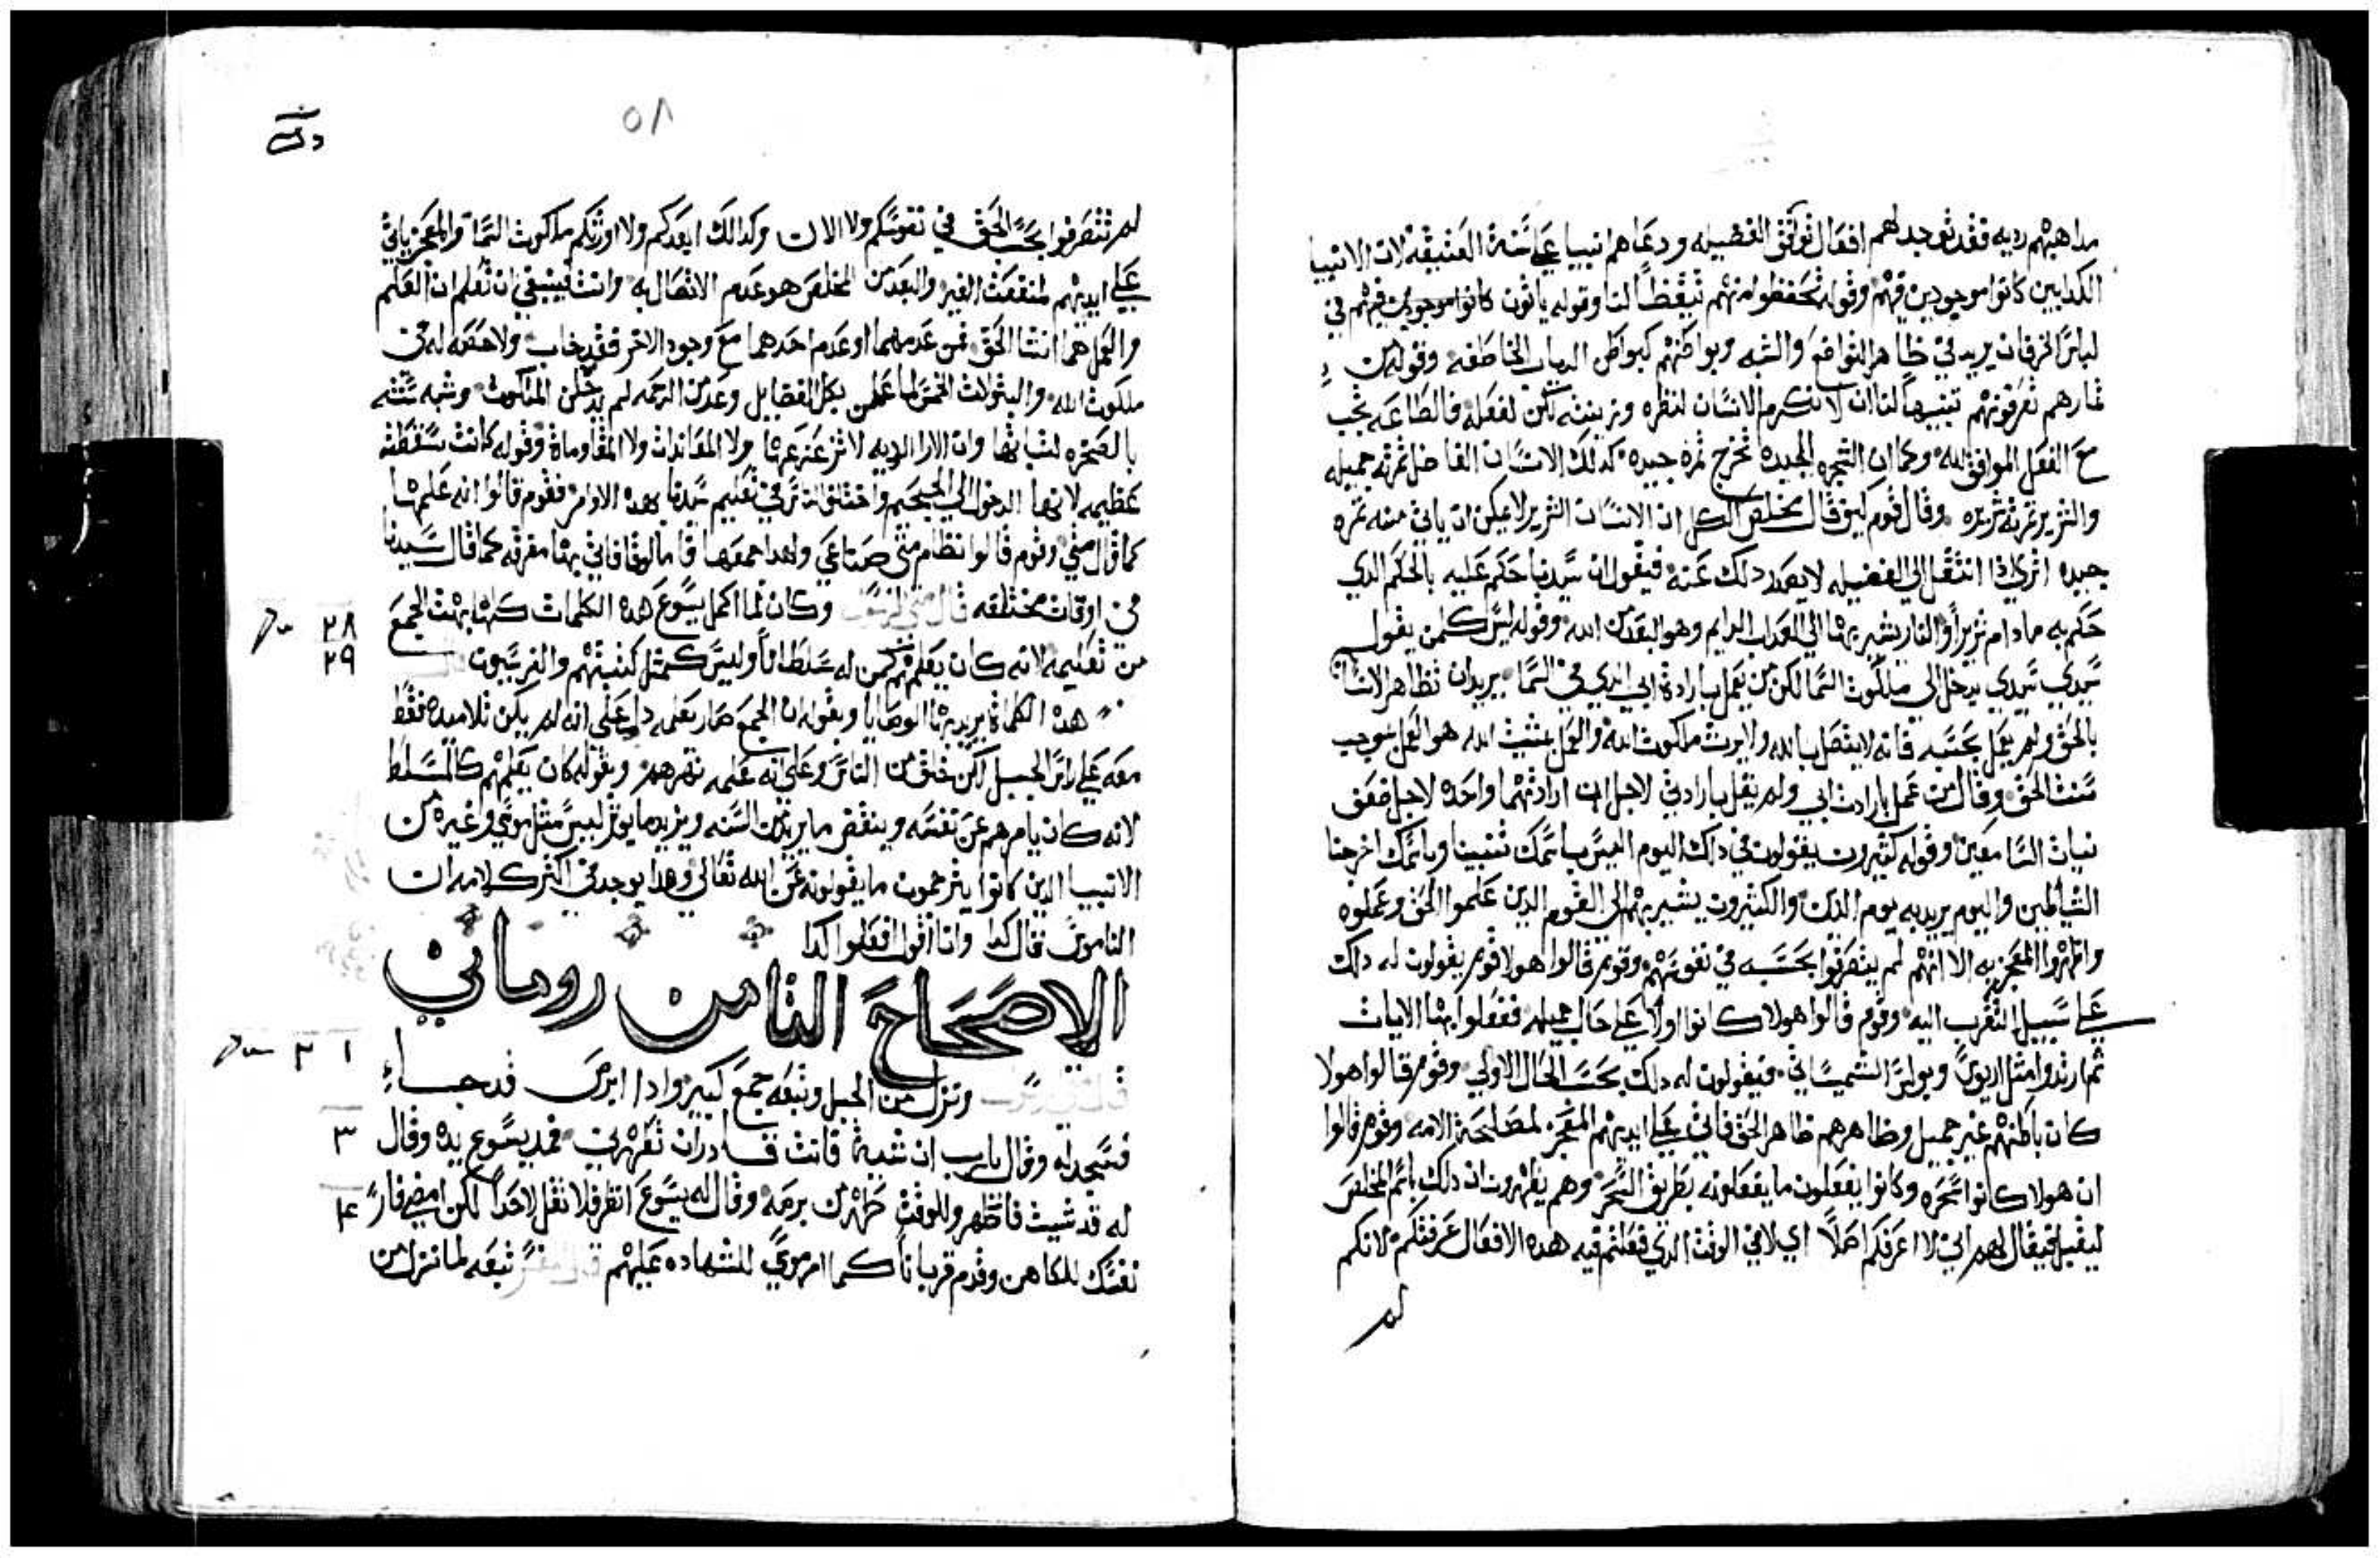 مداهبهم رديه فقد توجد لهم افعال توافق الفضيله ودعاهم انبيا على سنة العتيقة لان الانبيا
الكدابين كانوا موجودين فيهم وقوله تحفظوا منهم تيقظاً لنا وقوله ياتون كانوا موجودين فيهم في
لباس الخرفان يريد في ظاهر التواضع والشبه وبواطنهم كبواطن الدياب الخاطفه وقوله من
ثمارهم تعرفونهم تنبيهاً لنا ان لا نكرم الانسان لنظره وزينته لكن لفعله فالطاعه تجب
مع الفعل الموافق لله وكما ان الشجره الجيده تخرج ثمره جيده كدلك الانسان الفاضل ثمرته جميله
والشرير ثمرته شريره وقال قوم كيف قال مخلص الكل ان الانسان الشرير لا يمكن ان ياتي منه ثمره
جيده اترى ادا انتقل الى الفضيله لا يصدر دلك عنه فيقول ان سيدنا حكم عليه بالحكم الدي
حكم به مادام شريراً والنار يشير بها الى العداب الدايم وهو البعد من الله وقوله ليس كلمن يقول
سيدي سيدي يدخل الى ملكوت السما لكن من يعمل بارادة ابي الدي في السما يريد ان تظاهر الانسان
بالحق ولم يعمل بحسبه فانه لا يتصل بالله ولا يرث ملكوت الله والعمل بمشيت الله هو العمل بموجب
سنت الحق وقال من عمل بارادت ابي ولم يقل بارادتي لاجل ان ارادتهما واحده لاجل ضعف
نيات السامعين وقوله كثيرون يقولون في دلك اليوم اليس باسمك تنبينا وباسمك اخرجنا
الشياطين واليوم يريد به يوم الدين والكثيرون يشير بهم الى القوم الدين علموا الحق وعملوه
واظهروا المعجز به الا انهم لم يتصرفوا بحسبه في نفوسهم وقوم قالوا هولا قوم يقولون له دلك
على سبيل التقرب اليه وقوم قالوا هولا كانوا اولا على حال جميله ففعلوا بها الايات
ثم ارتدوا مثل اريوس وبولس الشميساطي فيقولون له دلك بحسب الحال الاولى وقوم قالوا هولا
كان باطنهم غير جميل وظاهرهم ظاهر الحق فاتى على ايديهم المعجز لمصلحة الامه وقوم قالوا
ان هولا كانوا سحره وكانوا يفعلون ما يفعلونه بطريق السحر وهم يظهرون ان دلك باسم المخلص
فيقال لهم اني لا اعرفكم اصلاً اي لا في الوقت الدي فعلتم فيه هده الافعال عرفتكم لانكم
لم
٥٨
لم تتصرفوا بحسب الحق في نفوسكم ولا الان وكدالك ابعدكم ولا اورثكم ملكوت السما والمعجز ياتي
على ايديهم لمنفعت الغير والبعد من المخلص هو عدم الاتصال به وانت فينبغي ان تعلم ان العلم
والعمل هما انتها الحق فمن عدمهما او عدم احدهما مع وجود الاخر فقد خاب ولا حصه له في
ملكوت الله والبتولات الخمس لما عملن بكل الفضايل وعدمن الرحمه لم يدخلن الملكوت وشبه سنته
بالصخره لثباتها وان الارا الرديه لا تزعزعها ولا المعاندات ولا المقاومات وقوله كانت سقطته
عظيمه لانها الدخول الى الجحيم واختلف الناس في تعليم سيدنا هده الاوامر فقوم قالوا انه علمها
كما قال متى وقوم قالوا نظام متى صناعي ولهدا جمعها فاما لوقا فاتى بها مفرقه كما قال سيدنا
في اوقات مختلفه قال متى الرسول وكان لما اكمل يسوع هده الكلمات كلها بهت الجمع
٢٨
من تعليمه لانه كان يعلمهم كمن له سلطاناً وليس كمثل كتبتهم والفريسيون
٢٩
هده الكلمات يريد بها الوصايا وبقوله ان الجمع صار يعلمه دل على انه لم يكن تلاميده فقط
معه على راس الجبل لكن خلق من الناس وعلى انه علمه نهرهم وبقوله كان يعلمهم كالمسلط
لانه كان يامرهم عن نفسه وينقض ما يريد من السنه ويزيد ما يوثر ليس مثل موسى وغيره من
الانبيا الدين كانوا يترجمون ما يقولونه عن الله تعالى وهدا يوجد في اكثر كلامه ان
الناموس قال كدا وانا اقول افعلوا كدا
الاصحاح الثامن روماني
قال متى الرسول ونزل من الجبل وتبعه جمع كبير وادا ابرص قد جاء
١ ٢
فسجد له وقال يارب ان شيت فانت قادر ان تطهرني فمد يسوع يده وقال
٣
له قد شيت فاطهر وللوقت طهر من برصه وقال له يسوع انظر فلا تقل لاحداً لكن امضي فار
٤
نفسك للكاهن وقدم قرباناً كما امر موسى للشهاده عليهم قال المفسر تبعه لما نزل من